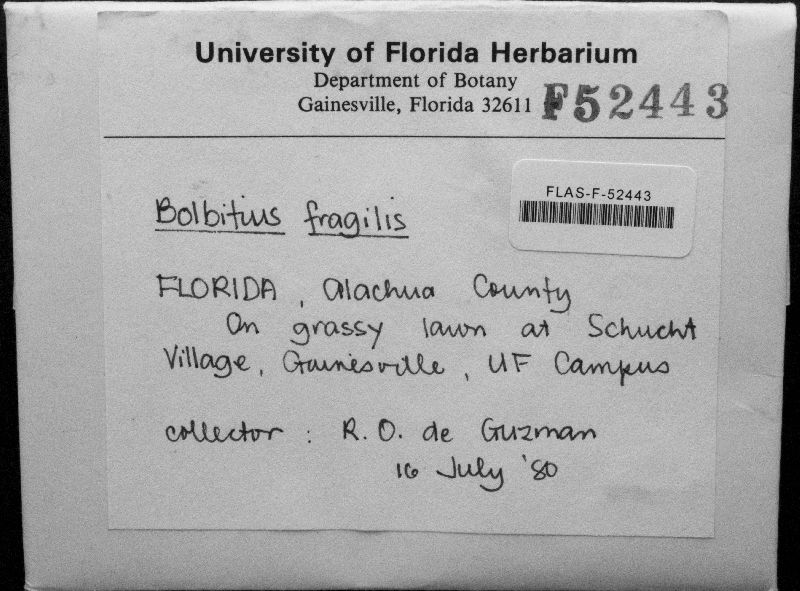 University of Florida Herbarium
Department of Botany
Gainesville, Florida 32611
F52443
FLAS-F-52443
Bolbitius fragilis
FLORIDA, Alachua County
On grassy lawn at Schucht
Village, Gainesville, UF Campus
collector : R. O. de Guzman
16 July '80